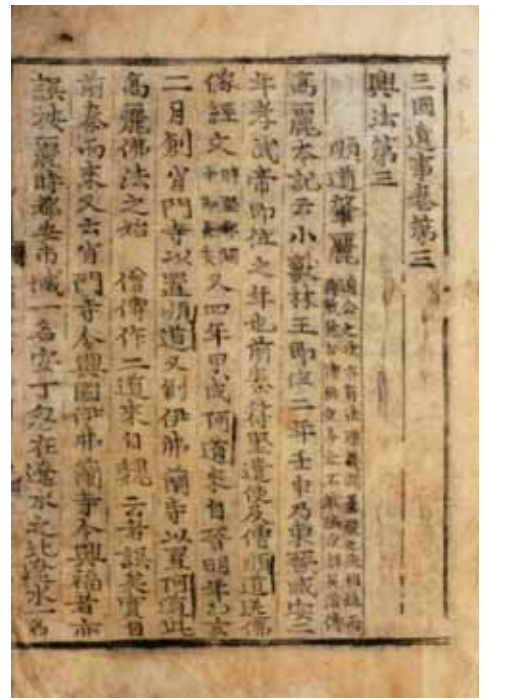 三國遺事卷第三
興法第三
順道肇麗 道公之次亦有法深義淵曇嚴之流相繼而
興教然古傳無文今亦不敢編次詳見僧傳
高麗本記云小獸林王即位二年壬申乃東晉咸安二
年孝武帝即位之年也前秦符堅遣使及僧順道送佛
像經文 時堅都關中即長安 又四年甲戌阿道來自晉明年乙亥
二月創省門寺以置順道又創伊弗蘭寺以置阿道此
高麗佛法之始 僧傳作二道來自魏云者誤矣實自
前秦而來又云省門寺今興國伊弗蘭寺今興福者亦
誤按麗時都安市城一名安丁忽在遼水之北遼水一名